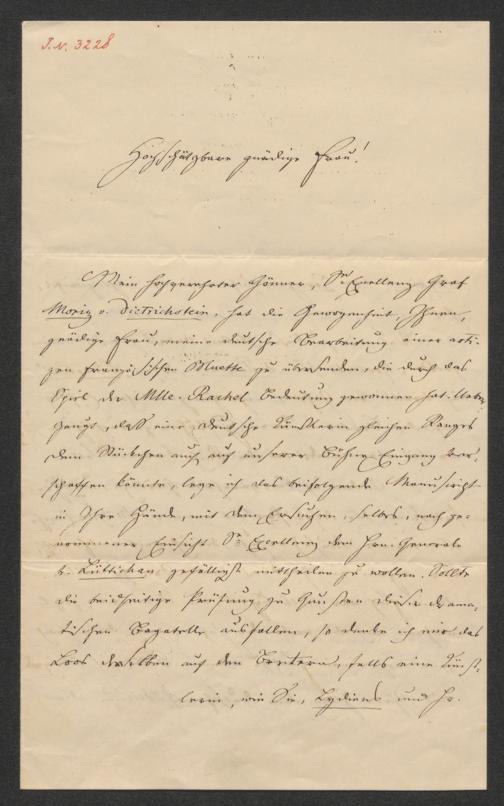 J.N. 3228
Hochschätzbare gnädige Frau!
Mein hochverehrter Gönner, Se Excellenz Graf
Moriz v. Dietrichstein, hat die Gewogenheit, Ihnen,
gnädige Frau, meine deutsche Bearbeitung einer arti-
gen französischen Bluette zu übersenden, die durch das
Spiel der Mlle. Rachel Bedeutung gewonnen hat. Ueber-
zeugt, daß eine deutsche Künstlerin gleichen Ranges
dem Stückchen auch auf unserer Bühne Eingang ver-
schaffen könnte, lege ich das beifolgende Manuscript
in Ihre Hände, mit dem Ersuchen, selbes, nach ge-
nommener Einsicht Sr Excellenz dem Hrn. Generale
v. Lüttichau gefälligst mittheilen zu wollen. Sollte
die beidseitige Prüfung zu Gunsten dieser drama-
tischen Bagatelle ausfallen, so denke ich mir das
Loos derselben auf den Bretern, falls eine Künst-
lerin, wie Sie, Lydiens und Hr.